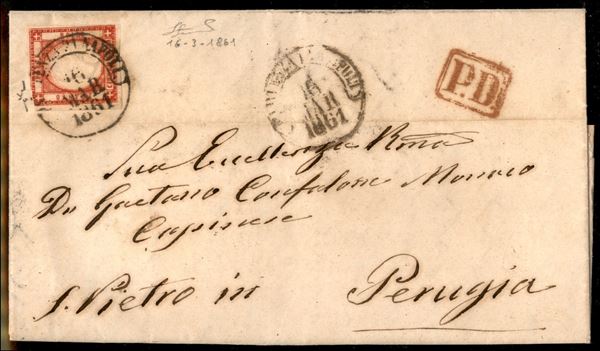 16-3-1861
PARTENZA DA NAPOLI
16
MAR
1861
16
MAR
1861
P.D
Sua Eccellenza Rma
Dn Gaetano Confalone Monaco
Capinese
S. Pietro in Perugia